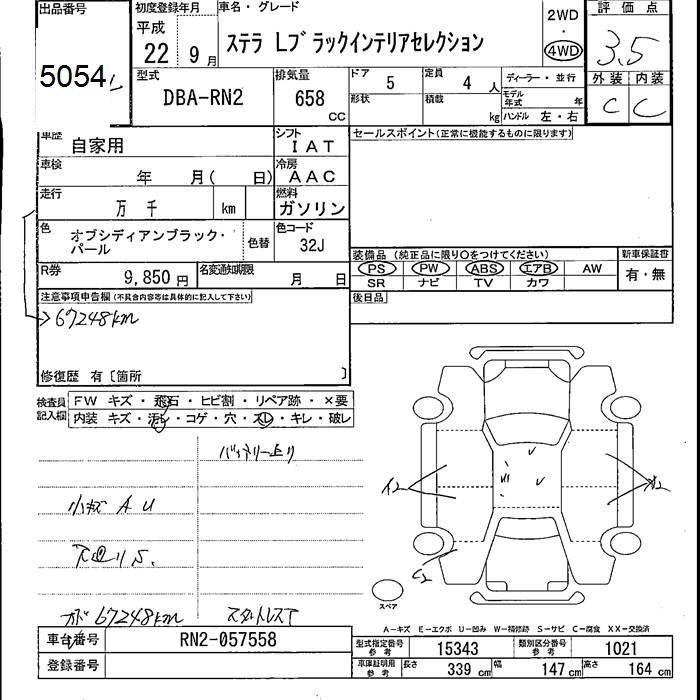 出品番号
5054
初度登録年月
平成
22 9月
車名・グレード
ステラ Lブラックインテリアセレクション
2WD
・
4WD
評価点
3.5
外装 内装
C C
型式
DBA-RN2
排気量
658
CC
ドア 5
定員 4人
形状
積載 kg
ディーラー・並行
モデル年式 年
ハンドル 左・右
車歴
自家用
シフト
IAT
セールスポイント(正常に機能するものに限ります)
車検
年 月( 日)
冷房
AAC
走行
万 千 km
燃料
ガソリン
色
オブシディアンブラック・
パール
色替
色コード
32J
装備品 (純正品に限り○をつけてください)
PS PW ABS エアB AW
SR ナビ TV カワ
新車保証書
有・無
R券
9,850 円
名変通知期限
月 日
後日品
注意事項申告欄(不具合内容等は具体的に記入して下さい)
67248km
修復歴 有〔箇所 〕
検査員
記入欄
FW キズ・飛石・ヒビ割・リペア跡・×要
内装 キズ・汚レ・コゲ・穴・スレ・キレ・破レ
バッテリー上り
小キズ A U
67248km
スタットレスT
スペア
A-キズ E-エクボ U-凹み W-補修跡 S-サビ C-腐食 XX-交換済
車台番号
RN2-057558
登録番号
型式指定番号
参考
15343
類別区分番号
参考
1021
車庫証明用
参考
長さ 339 cm 幅 147 cm 高さ 164 cm